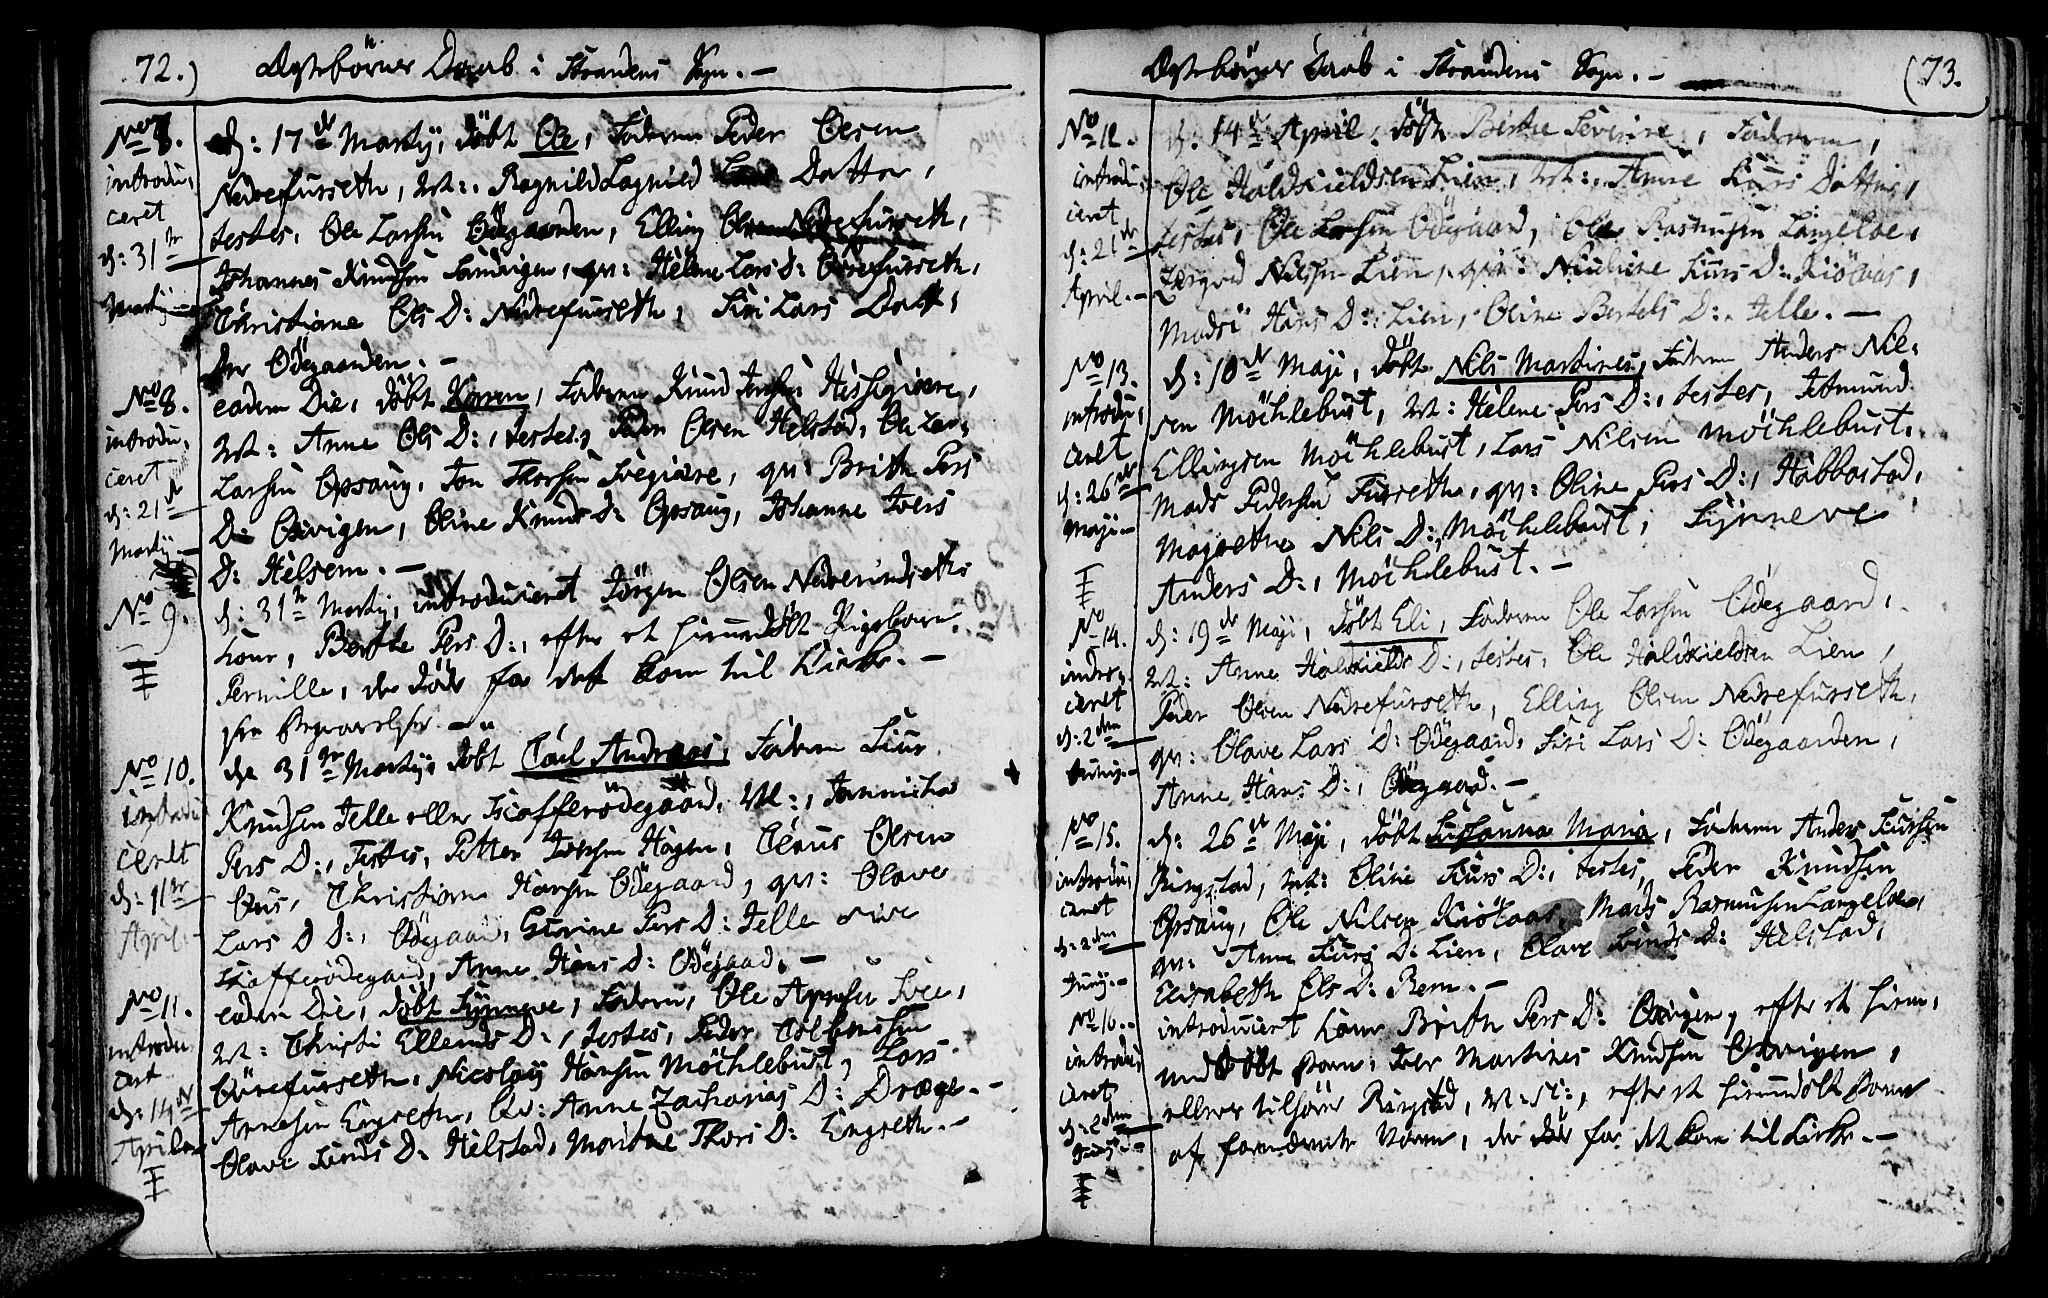 72.) Ægtebörners Daab i Strandens Sogn. —
No 7.
introdu,
ceret
d: 31te
Martij —
d: 17de Martij, döbt Ole, Faderen Peder Olsen
Nedrefurseth, M: Ragnild Lagnild Datter,
testes, Ole Larsen Ödegaarden, Elling Olsen Nedrefurseth,
Johannes Knudsen Sandvigen, qv: Helene Lars D: Övrefurseth,
Christiane Ols D: Nedrefurseth, Siri Lars Datt,
ter Ödegaarden. —
No 8.
introdu,
ceret
d: 21de
Martij —
eadem Die, döbt Karen, Faderen Knud
M: Anne Ols D:, testes, Peder Olsen Helstad, Ole Lar,
Larsen Opsaug, Jon Thorsen Svegiære, qv: Brithe Pers
D: Osvigen, Oline Knuds D: Opsaug, Johanne Ivers
D: Helsem. —
No 9.
d: 31te Martij, introduceret Jörgen Olsen
Kone, Berthe Pers D:, efter et hiemmedöbt Pigebarn
Pernille, der döde for det kom til Kirke. —
No 10.
introdu
ceret
d: 11te
April. —
de 31te Martij, döbt Carl Andreas, Faderen Siur
Knudsen Telle eller Skafferödegaard, M:, Jannicha
Pers D:, Testes, Petter Iversen Hagen, Claus Olsen
Huus, Christian Hansen Ödegaard, qv: Olave
Lars D D:, Ödegaard, Gurine Pers D: Telle sive
Skafferödegaard, Anne Hans D: Ödegaard. —
No 11.
introdu
ceret
d: 14de
Aprilis
eadem Die, döbt Synneve, Faderen, Ole Arnesen Svee,
M: Christi Ellends D:, testes, Peder Colbensen
Övrefurseth, Nicolay Hansen Möchlebust, Lars
Arnesen Engseth, Qv: Anne Zacharias D: Dræge. —
Olave Svends D: Helstad, Marthe Thors D: Engseth. —
Ægtebörners Daab i Strandens Sogn. — (73.
No 12.
introdu,
ceret
d: 21de
April. —
d: 14de April, döbt Birthe Severine, Faderen,
Ole Haldkieldsen Lien, M:, Anne Siurs Datter,
testes, Ole Larsen Ödegaard, Ole Rasmusen Langeloe,
Nilsen Lien, qv: Siurs D: Kiölaas,
Madsi Hans D: Lien, Oline Bertels D: Telle. —
No 13.
introdu,
ceret
d: 26de
Maji —
d: 10de Maji, döbt Nils Martines, Faderen Anders Nil,
sen Möchlebust, M: Helene Pers D:, testes, Tetmund
Ellingsen Möchlebust, Lars Nilsen Möchlebust,
Mads Pedersen Furseth, qv: Oline Pers D:, Habbastad,
Magrethe Nils D: Möchlebust, Synneve
Anders D:, Möchlebust. —
No 14.
introdu,
ceret
d: 2den
Junij —
d: 19de Maji, döbt Eli, Faderen Ole Larsen Ödegaard,
M: Anne Haldkields D:, testes, Ole Haldkieldsen Lien,
Peder Olsen Nedrefurseth, Elling Olsen Nedrefurseth,
qv: Olave Lars D: Ödegaard, Siri Lars D: Ödegaarden,
Anne Hans D:, Ödegaard. —
No 15.
introdu,
ceret
d: 2den
Junij —
d: 26de Maji, döbt Susanna Maria, Faderen Anders Siursen
Ringstad, M: Oline Siurs D:, testes, Peder Knudsen
Opsaug, Ole Nilsen Kiölaas, Mads Rasmusen Langeloe,
qv: Anne Siurs D: Lien, Olave Svends D: Helstad,
Elisabeth Ols D: Rem. —
No 16.
introdu,
ceret
d: 2den
Junij —
introduceret Kone Brithe Pers D: Osvigen, efter et hiem,
medöbt Barn, Iver Martines Knudsen Osvigen,
ellers tilhörer Ringstad, efter et hiemmedöbt Barn
af fornævnte Navn, der döde for det kom til Kirke. —